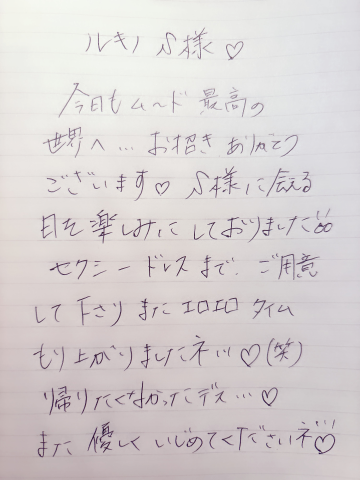 ルキノ S様♡
今日もムード 最高の
世界へ… お招き ありがとう
ございます♡ S様に会える
日を楽しみに しておりました
セクシードレスまで ご用意
して 下さり また エロエロ タイム
もり上がりましたネ…♡(笑)
帰りたくなかったデス…♡
また 優しく いじめてくださいネ♡